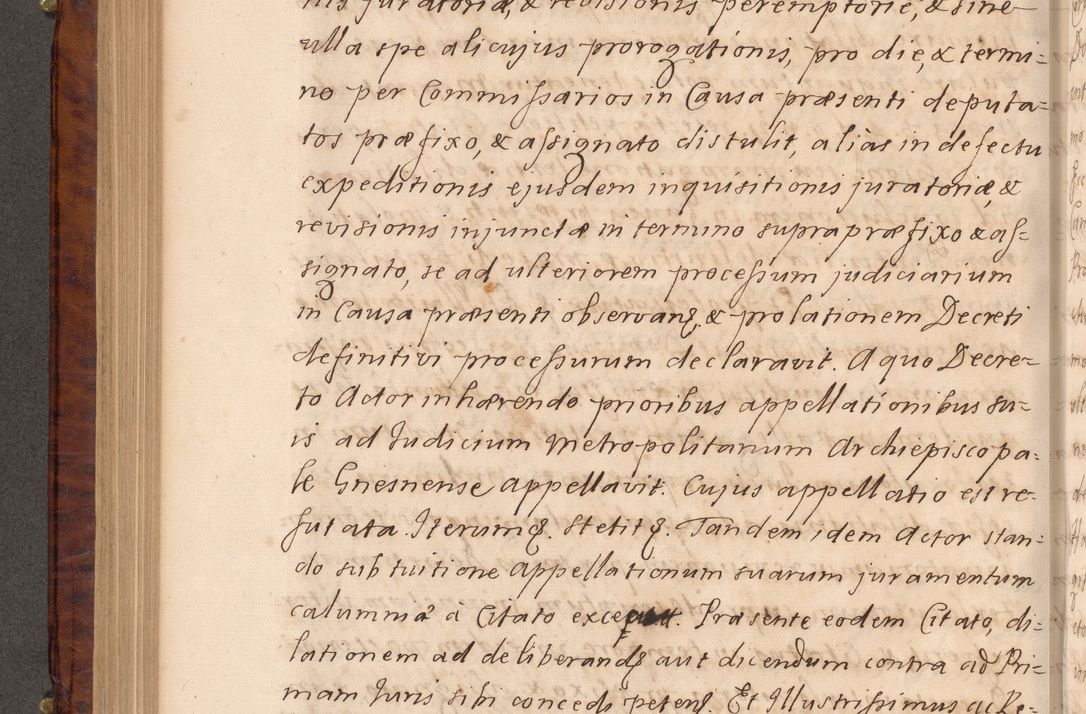 nis juratoriæ, & revisionis peremptorie, & sine
ulla spe alicujus prorogationis, pro die, & termi=
no per Commissarios in Causa præsenti deputa=
tos præfixo, & assignato distulit, aliàs in defectu
expeditionis ejusdem inquisitionis juratoriæ, &
revisionis injunctæ in termino supra præfixo & as=
signato, se ad ulteriorem processum judiciarium
in Causa præsenti observanꝫ, & prolationem Decreti
definitivi processurum declaravit. A quo Decre=
to Actor inhærendo prioribus appellationibus su=
is ad Judicium Metropolitanum Archiepiscopa=
le Gnesnense appellavit. Cujus appellatio est re=
futata. Iterumqꝫ. Stetitqꝫ. Tandem idem Actor stan=
do sub tuitione appellationum suarum juramentum
calumniæ à Citato excepit. Præsente eodem Citato, di=
lationem ad deliberandꝫ aut dicendum contra ad Pri=
mam Juris sibi concedi petenꝫ. Et Illustrissimus ac Re=